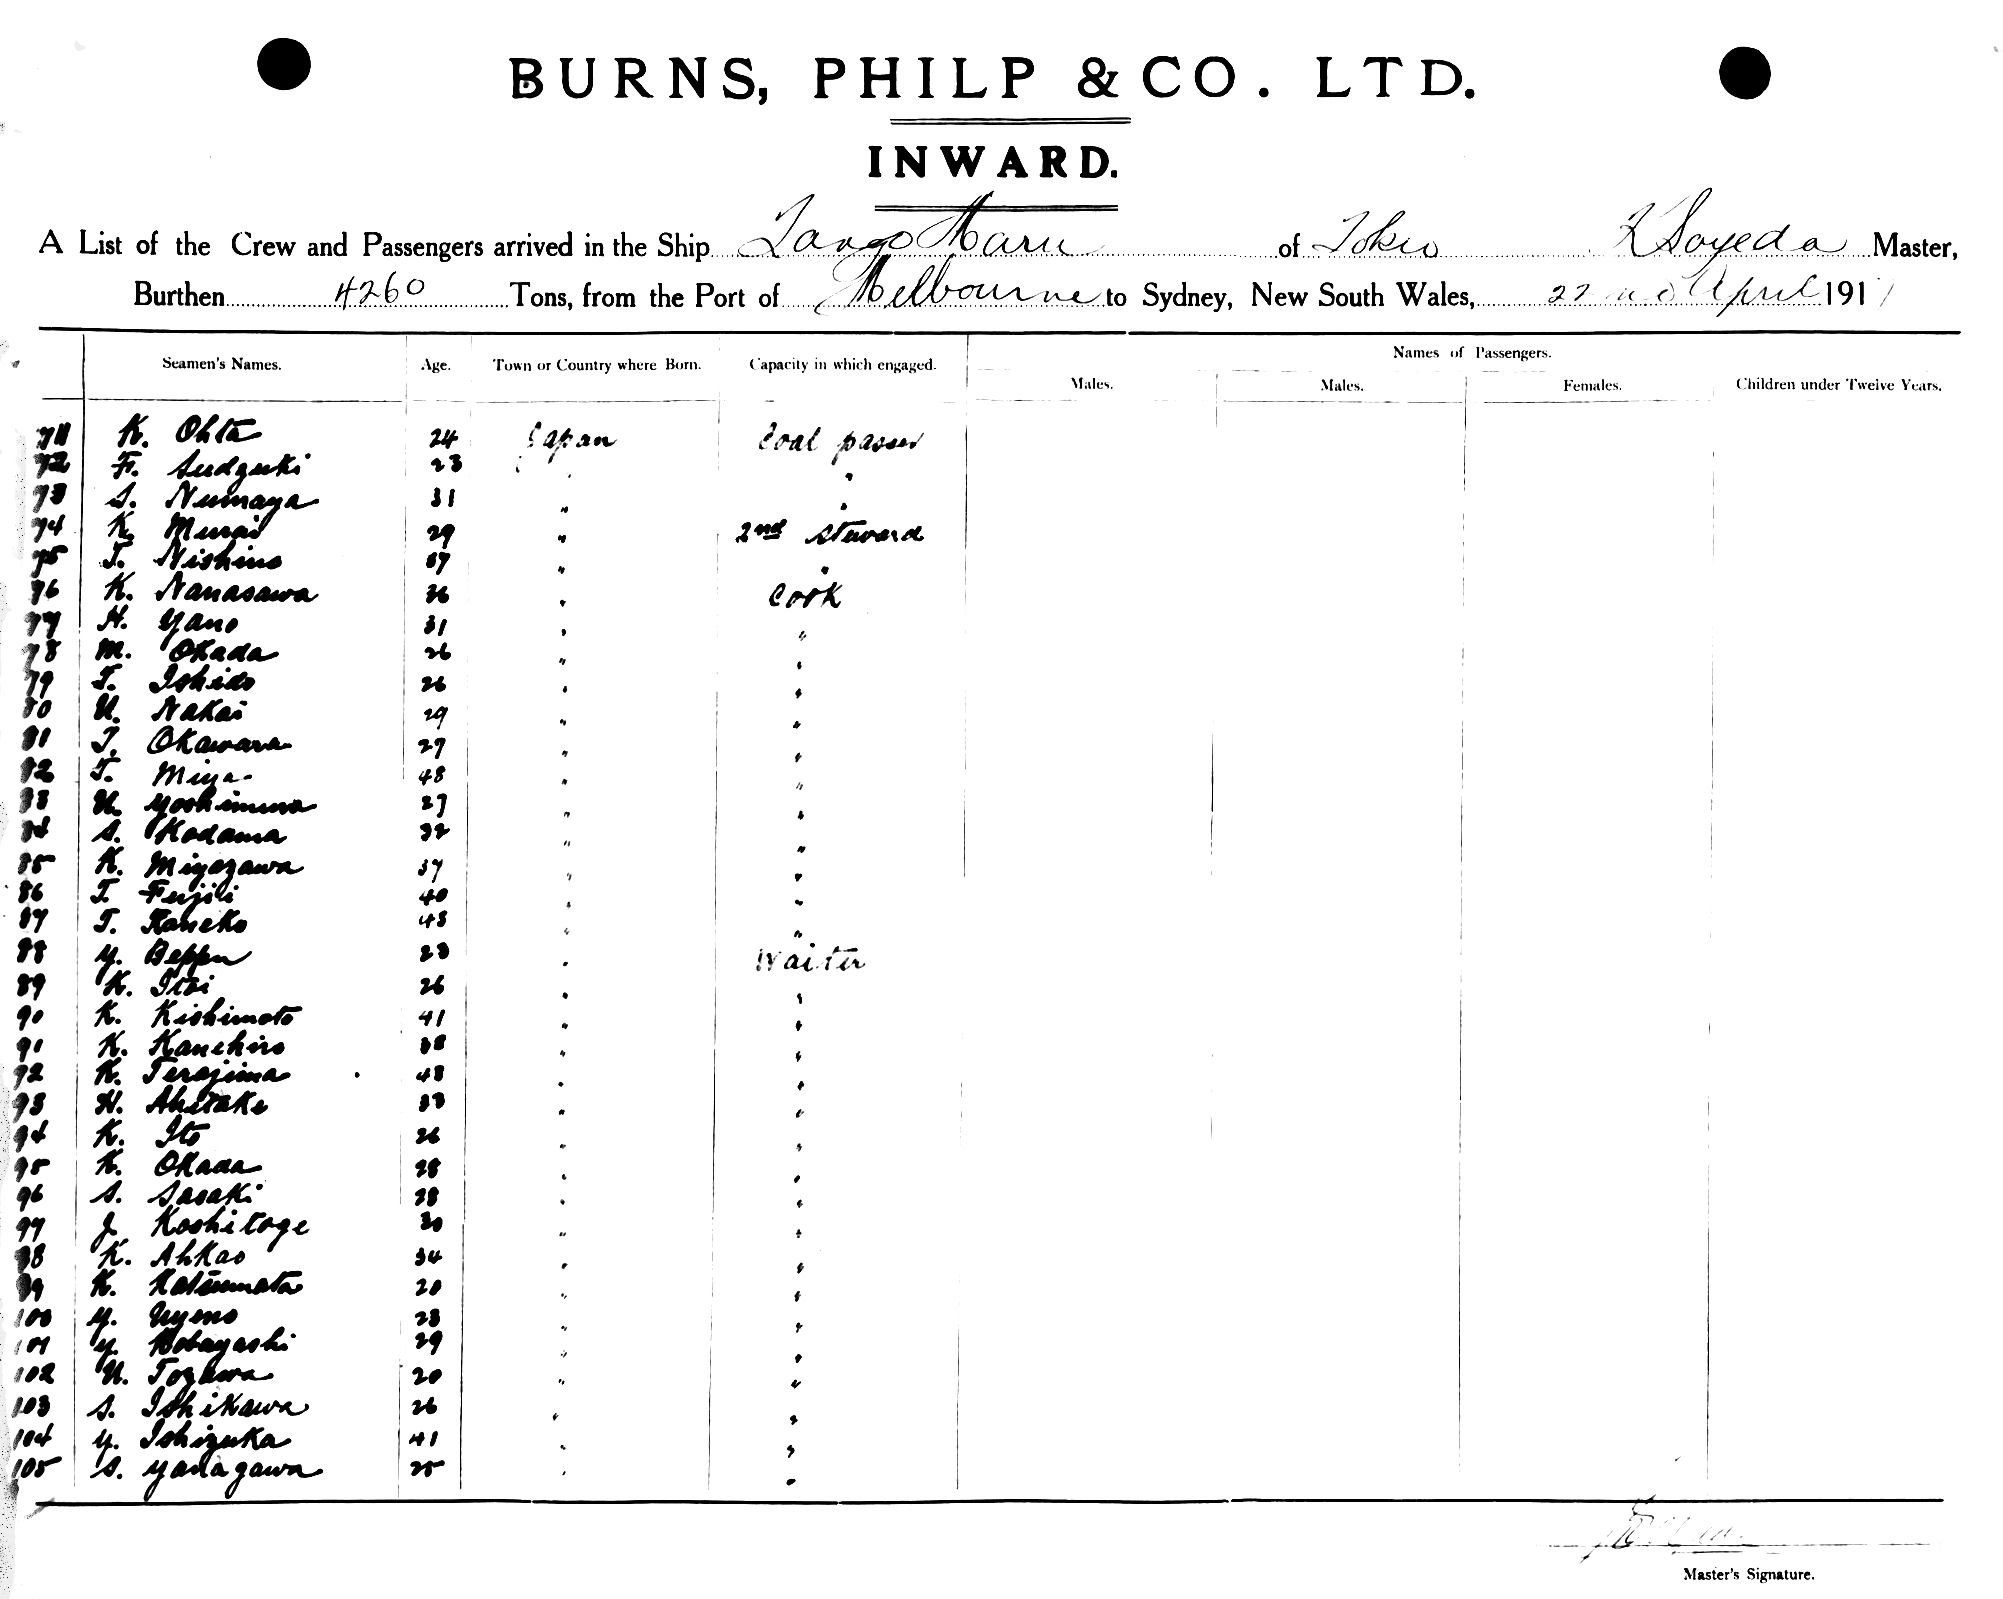 BURNS, PHILP & CO. LTD.
INWARD.
A List of the Crew and Passengers arrived in the Ship Tango Maru of Tokio K Soyeda Master,
Burthen 4260 Tons, from the Port of Melbourne to Sydney, New South Wales, 22nd April 1917
Names of Passengers.
Seamen's Names. Age. Town or Country where Born. Capacity in which engaged. Males. Males. Females. Children under Twelve Years.
71 K. Ohta 24 Japan Coal passer
72 F. Sudzuki 23 "
73 S. Numaya 31 " "
74 K. Murai 29 " 2nd steward
75 T. Nishino 37 " "
76 K. Nanasawa 26 " Cook
77 H. Yano 31 " "
78 M. Okada 26 " "
79 T. Ishido 26 " "
80 U. Nakai 29 " "
81 T. Okawara 27 " "
82 T. Miya 48 " "
83 U. Yoshimura 27 " "
84 S. Kodama 32 " "
85 K. Miyazawa 37 " "
86 T. Fujii 40 " "
87 T. Kaneko 43 " "
88 Y. Beppu 23 " Waiter
89 K. Itoi 26 " "
90 K. Kishimoto 41 " "
91 K. Kanehiro 38 " "
92 K. Terajima 43 " "
93 H. Ahitake 33 " "
94 K. Ito 26 " "
95 K. Okada 28 " "
96 S. Sasaki 28 " "
97 J. Koshitoge 30 " "
98 K. Ahkao 34 " "
99 K. Katsumata 20 " "
100 Y. Uyeno 23 " "
101 Y. Kobayashi 29 " "
102 U. Tozawa 20 " "
103 S. Ishikawa 26 " "
104 Y. Ishizuka 41 " "
105 S. Yanagawa 25 " "
Master's Signature.